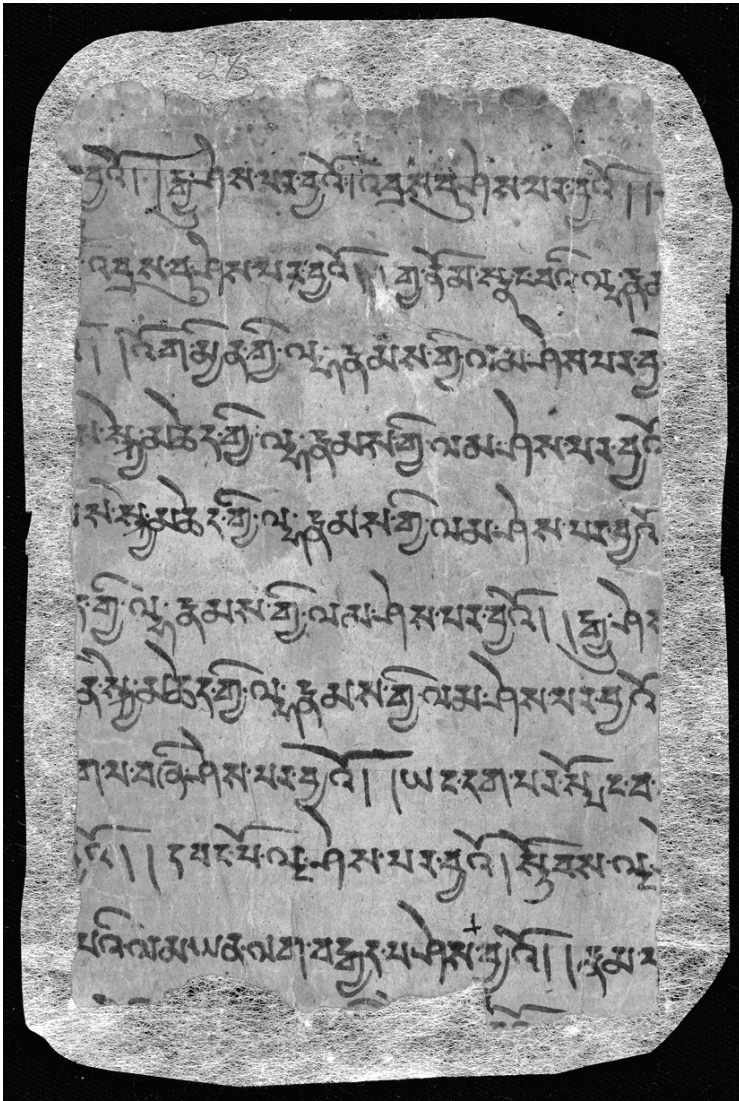 བྱའོ། །རྒྱུ་ཤེས་པར་བྱའོ། འབྲས་བུ་ཤེས་པར་བྱའོ། །
འབྲས་བུ་ཤེས་པར་བྱའོ། །གྱ་ནོམ་སྣང་བའི་ལྷ་རྣམ
། །འོག་མྱིན་གྱི་ལྷ་རྣམས་ཀྱི་ལམ་ཤེས་པར་བྱ
ས་སྐྱེ་མཆེད་ཀྱི་ལྷ་རྣམས་ཀྱི་ལམ་ཤེས་པར་བྱའོ
ས་སྐྱེ་མཆེད་ཀྱི་ལྷ་རྣམས་ཀྱི་ལམ་ཤེས་པར་བྱའོ
ད་ཀྱི་ལྷ་རྣམས་ཀྱི་ལམ་ཤེས་པར་བྱའོ། །རྒྱུ་ཤེས
ན་སྐྱེ་མཆེད་ཀྱི་ལྷ་རྣམས་ཀྱི་ལམ་ཤེས་པར་བྱའོ
ག་པ་བཞི་ཤེས་པར་བྱའོ། །ཡང་དག་པར་སྤོང་བ་
འོ། །དབང་པོ་ལྔ་ཤེས་པར་བྱའོ། སྟོབས་ལྔ་
པའི་ལམ་ཡན་ལག་བརྒྱད་པ་ཤེས་བྱའོ། །རྣམ་པ